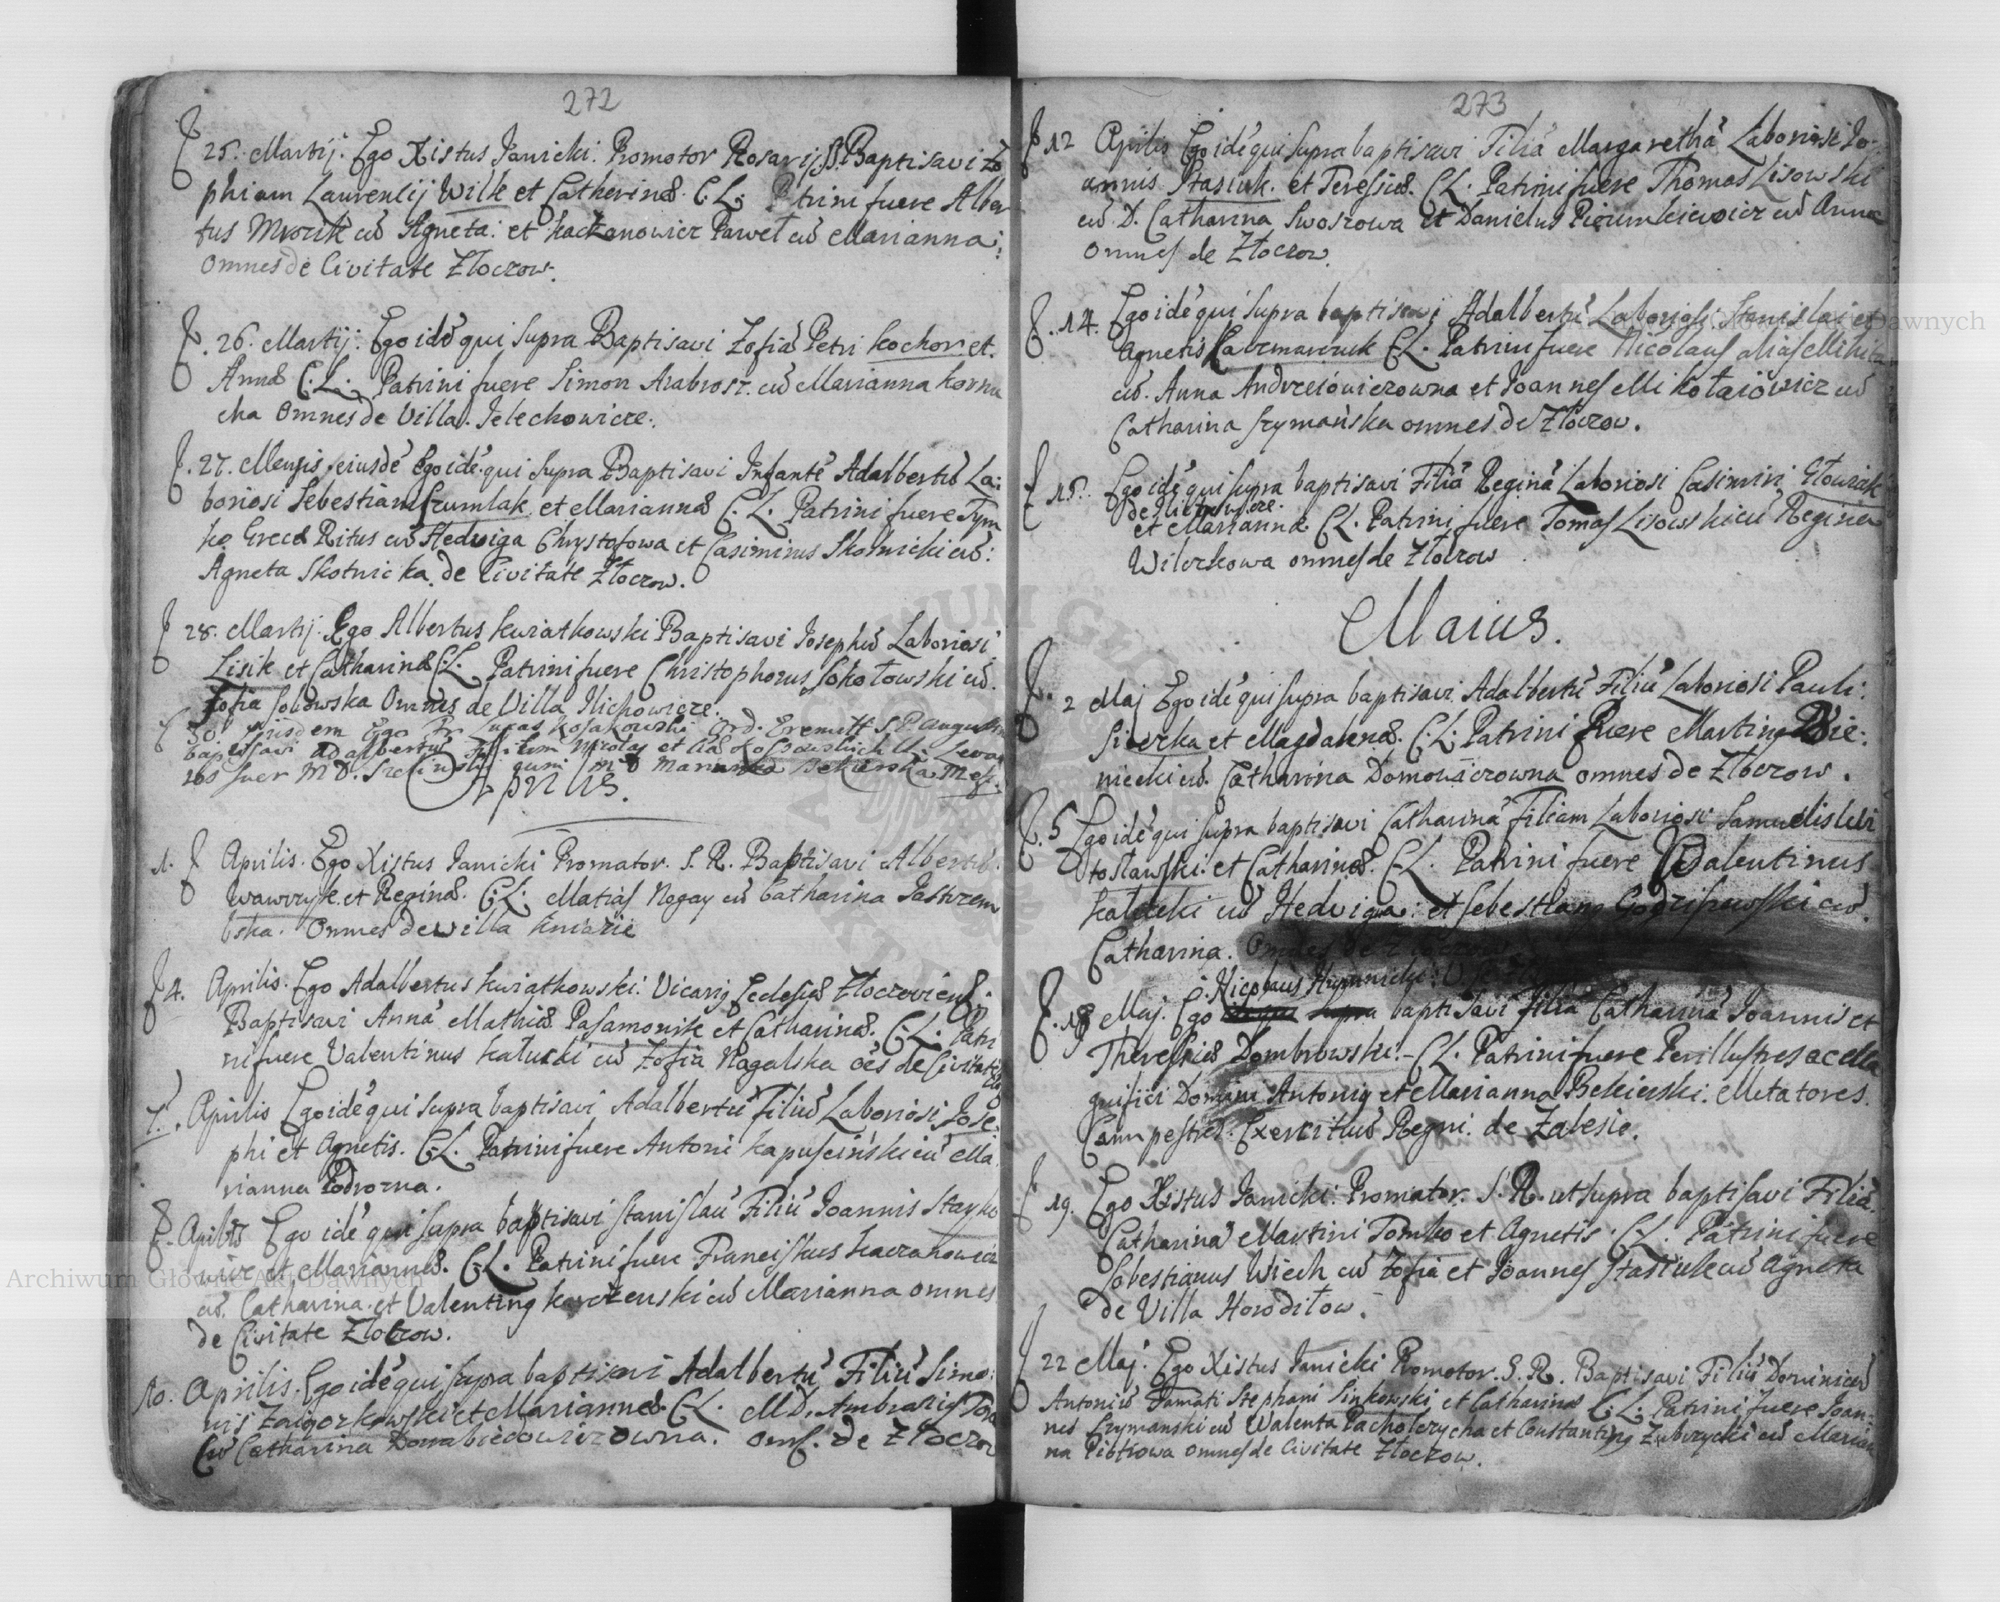 272
25. Martij. Ego Xistus Janicki. Promotor Rosarij S. Baptisavi Zo
phiam Laurentij Wilk et Catherinæ. C. L. Patrini fuere Alber
tus Mrozik cū Agneta: et Kaczanowicz Paweł cū Marianna:
Omnes de Civitate Złoczow.
26. Martij. Ego idē qui supra Baptisavi Zofiā Petri Kochor et
Annæ C. L. Patrini fuere Simon Arabrosz. cū Marianna Kornu
cha Omnes de Villa. Jelechowicze.
27. Mensis eiusdē Ego idē qui supra Baptisavi Infantē Adalbertū La:
boriosi Sebestiani Szumlak et Mariannæ C. L. Patrini fuere Tym
ko Grecæ Ritus cū Hedviga Chrystofowa et Casimirus Skotnicki cū:
Agneta Skotnicka. de Civitate Złoczow.
28. Martij. Ego Albertus Kwiatkowski Baptisavi Josephū Laboriosi
Lisik et Catharinæ C. L. Patrini fuere Christophorus Sokołowski cū.
Zofia Solowska Omnes de Villa Ilichowicze.
30. eiusdem Ego Fr. Lucas Kosakowski Ord. Eremitt S. P. Augustin
baptisavi Adalbertū Filium Nikolay et
res fuer M. D. M D Marianna Bekierska
Aprilis.
1. Aprilis. Ego Xistus Janicki Promotor. S. R. Baptisavi Albertū.
Wawrzyk. et Reginæ. C. L. Matias Nogay cū Catharina Jastrzem
bska. Omnes de villa Kniażie
4. Aprilis. Ego Adalbertus Kwiatkowski. Vicarij Ecclesiæ Złoczoviensis
Baptisavi Annā Mathiæ Pasamonik et Catharinæ. C. L. Patri
ni fuere Valentinus Kałucki cū Zofia Nogalska oēs de Civitate
7. Aprilis Ego idē qui supra baptisavi Adalbertū Filiū Laboriosi Jose.
phi et Agnetis. C. L. Patrini fuere Antoni Kapuściński cū Ma
rianna Podrozna.
8. Aprilis Ego idē qui supra baptisavi Stanislaū Filiū Joannis Stayko
wicz et Mariannæ. C. L. Patrini fuere Franciskus Kaczanowicz
cū. Catharina. et Valentinus Karczewski cū Marianna omnes
de Civitate Złoczow.
10. Aprilis. Ego idē qui supra baptisavi Adalbertū Filiū Simo:
nis Zaigorkowski et Mariannæ. C. L. M. D. Ambrosig
Cū Catharina Domabiedowiczowna. Oms. de Złoczow
273
12 Aprilis Ego idē qui supra baptisavi Filiā Margarethā Laboriosi Jo-
annis Stasiuk. et Teresiæ. C. L. Patrini fuere Thomas Lisowski
cū D. Catharina Swoszowa et Danielus Piorunkiewicz cū Anna
omnes de Złoczow.
14. Ego idē qui supra baptisavi Adalbertū Laboriosi Stanislai et
Agnetis Kaczmarczuk C. L. Patrini fuere Nicolaus alias Mikita
cū. Anna Andrzeiowiczowna et Joannes Mikołaiowicz cū
Catharina Szymańska omnes de Złoczow.
15. Ego idē qui supra baptisavi Filiā Reginā Laboriosi Casimiri Głowiak
et Mariannæ C. L. Patrini fuere Tomas Lisowski cū Regina
Wilczkowa omnes de Złoczow
Maius.
2 Maj Ego idē qui supra baptisavi Adalbertū Filiū Laboriosi Pauli:
Siczka et Magdalenæ. C. L. Patrini fuere Martinus Wie:
niecki cū. Catharina Domowiczowna omnes de Złoczow.
5 Ego idē qui supra baptisavi Catharinā Filiam Laboriosi Samuelis
tosławski et Catharinæ. C. L. Patrini fuere Valentinus
Kalucki cū Hedviga: et Sebestianus Godziszewski cū.
Catharina. Omnes de Złoczow
Nicolaus
18 Maj. Ego idē qui supra baptisavi filiā Catharinā Joannis et
Theresiæ Dombrowski. C. L. Patrini fuere Perillustres ac Ma
gnifici Domini Antonig et Marianna Bekierski. Metatores.
Campestres. Exercitus Regni. de Zalesie.
19. Ego Xistus Janicki. Promotor. S. R. ut supra baptisavi Filiā.
Catharinā Martini Tomko et Agnetis. C. L. Patrini fuere
Sobestianus Wiech cū Zofia et Joannes Stasiuk cū Agneta
de Villa Horodiłow.
22 Maj. Ego Xistus Janicki Promotor. S. R. Baptisavi Filiū Dominicū
Antoniū Famati Stephani Sinkowski et Catharinæ C. L. Patrini fuere Joan:
nes Szymanski cū Valenta Pachołczycha et Constantinus Zubrzycki cū Marian
na Piotrowa omnes de Civitate Złoczow.
Archiwum Główne Akt Dawnych
Archiwum Główne Akt Dawnych